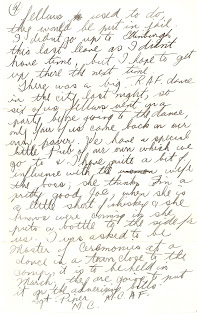 (4
fellows used to do,
they would be put in jail.
I didn't go up to Edinburgh
this last leave as I didn't
have time, but I hope to get
up there the next time.
There was a big R.A.F. dance
in the city last night, so
six of us fellows went in a
party before going to the dance
only four of us came back on our
own power. We have a special
little Pub of our own which we
go to & I have quite a bit of
influence with the woman
the boss, she thinks I'm a
pretty good lad, when she is
a little short of whiskey & she
knows were coming in she
puts a bottle to the side for
us. I was asked to be
Master of Ceremonies at a
dance in a town close to the
camp it is to be held in
March, they are going to put
it on the advertising bills
Sgt. Piper R.C.A.F.
M.C.